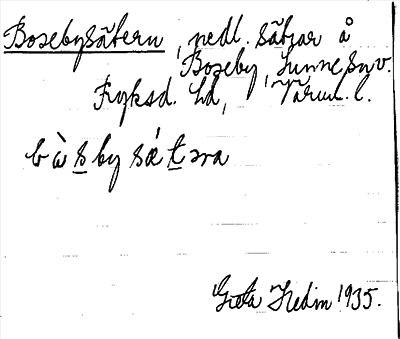 Bosebysätern, nedl. sätrar å
Boseby, Sunne snv.
Fryksd. hd, Värml. l.
b ὰ s by sǽ t əra
Greta Hedin 1935.